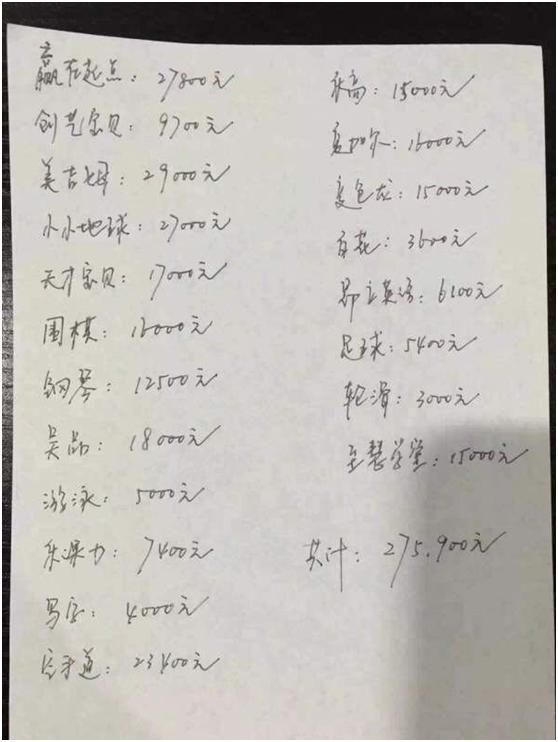 赢在起点：27800元
创艺宝贝：9700元
美吉姆：29000元
小小地球：27000元
天才宝贝：17000元
围棋：16000元
钢琴：12500元
昊品：18000元
游泳：5000元
乐课力：7400元
写字：4000元
空手道：23400元
乐高：15000元
爱迪尔：16000元
变色龙：15000元
百花：3600元
昂立英语：6100元
足球：5400元
轮滑：3000元
至慧学堂：15000元
共计：275.900元